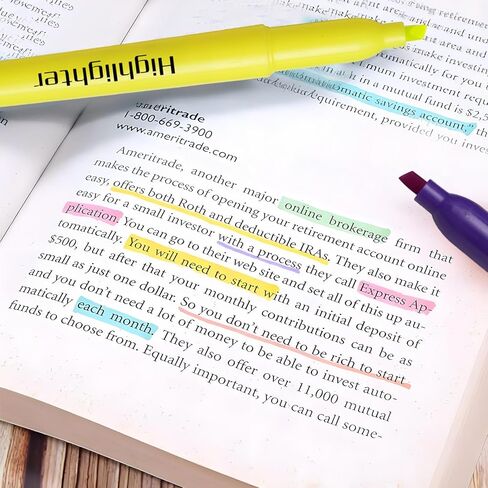 Highlighter
retirement
area and
make investing
automatically for you
investment
in a mutual fund is
savings account,"
provided you
1-800-669-3900
www.ameritrade.com
Ameritrade, another major online brokerage firm that
makes the process of opening your retirement account online
easy, offers both Roth and deductible IRAs. They also make it
easy for a small investor with a process they call Express Ap-
plication. You can go to their web site and set all of this up au-
tomatically. You will need to start with an initial deposit of
$500, but after that your monthly contributions can be as
small as just one dollar. So you don't need to be rich to start
and you don't need a lot of money to be able to invest auto-
matically each month. They also offer over 11,000 mutual
funds to choose from. Equally important, you can call some-